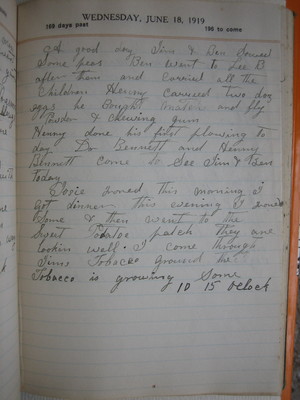 WEDNESDAY, JUNE 18, 1919
168 days past
196 to come
A good day Jim & Ben
Some peas Ben went to Lee B
after them and carried all the
Children Henry carried two doz
eggs he bought and fly
Powder & chewing gum
Henry done his first plowing to
day Dr Bennett and Henry
Bennett come to See Jim & Ben
Today
Dosie Ironed this morning I
got dinner this evening I
Some & then went to the
Sweet Potatoe patch they are
lookin well. I come through
Jims Tobacco ground the
Tobacco is growing Some
10 15 Oclock